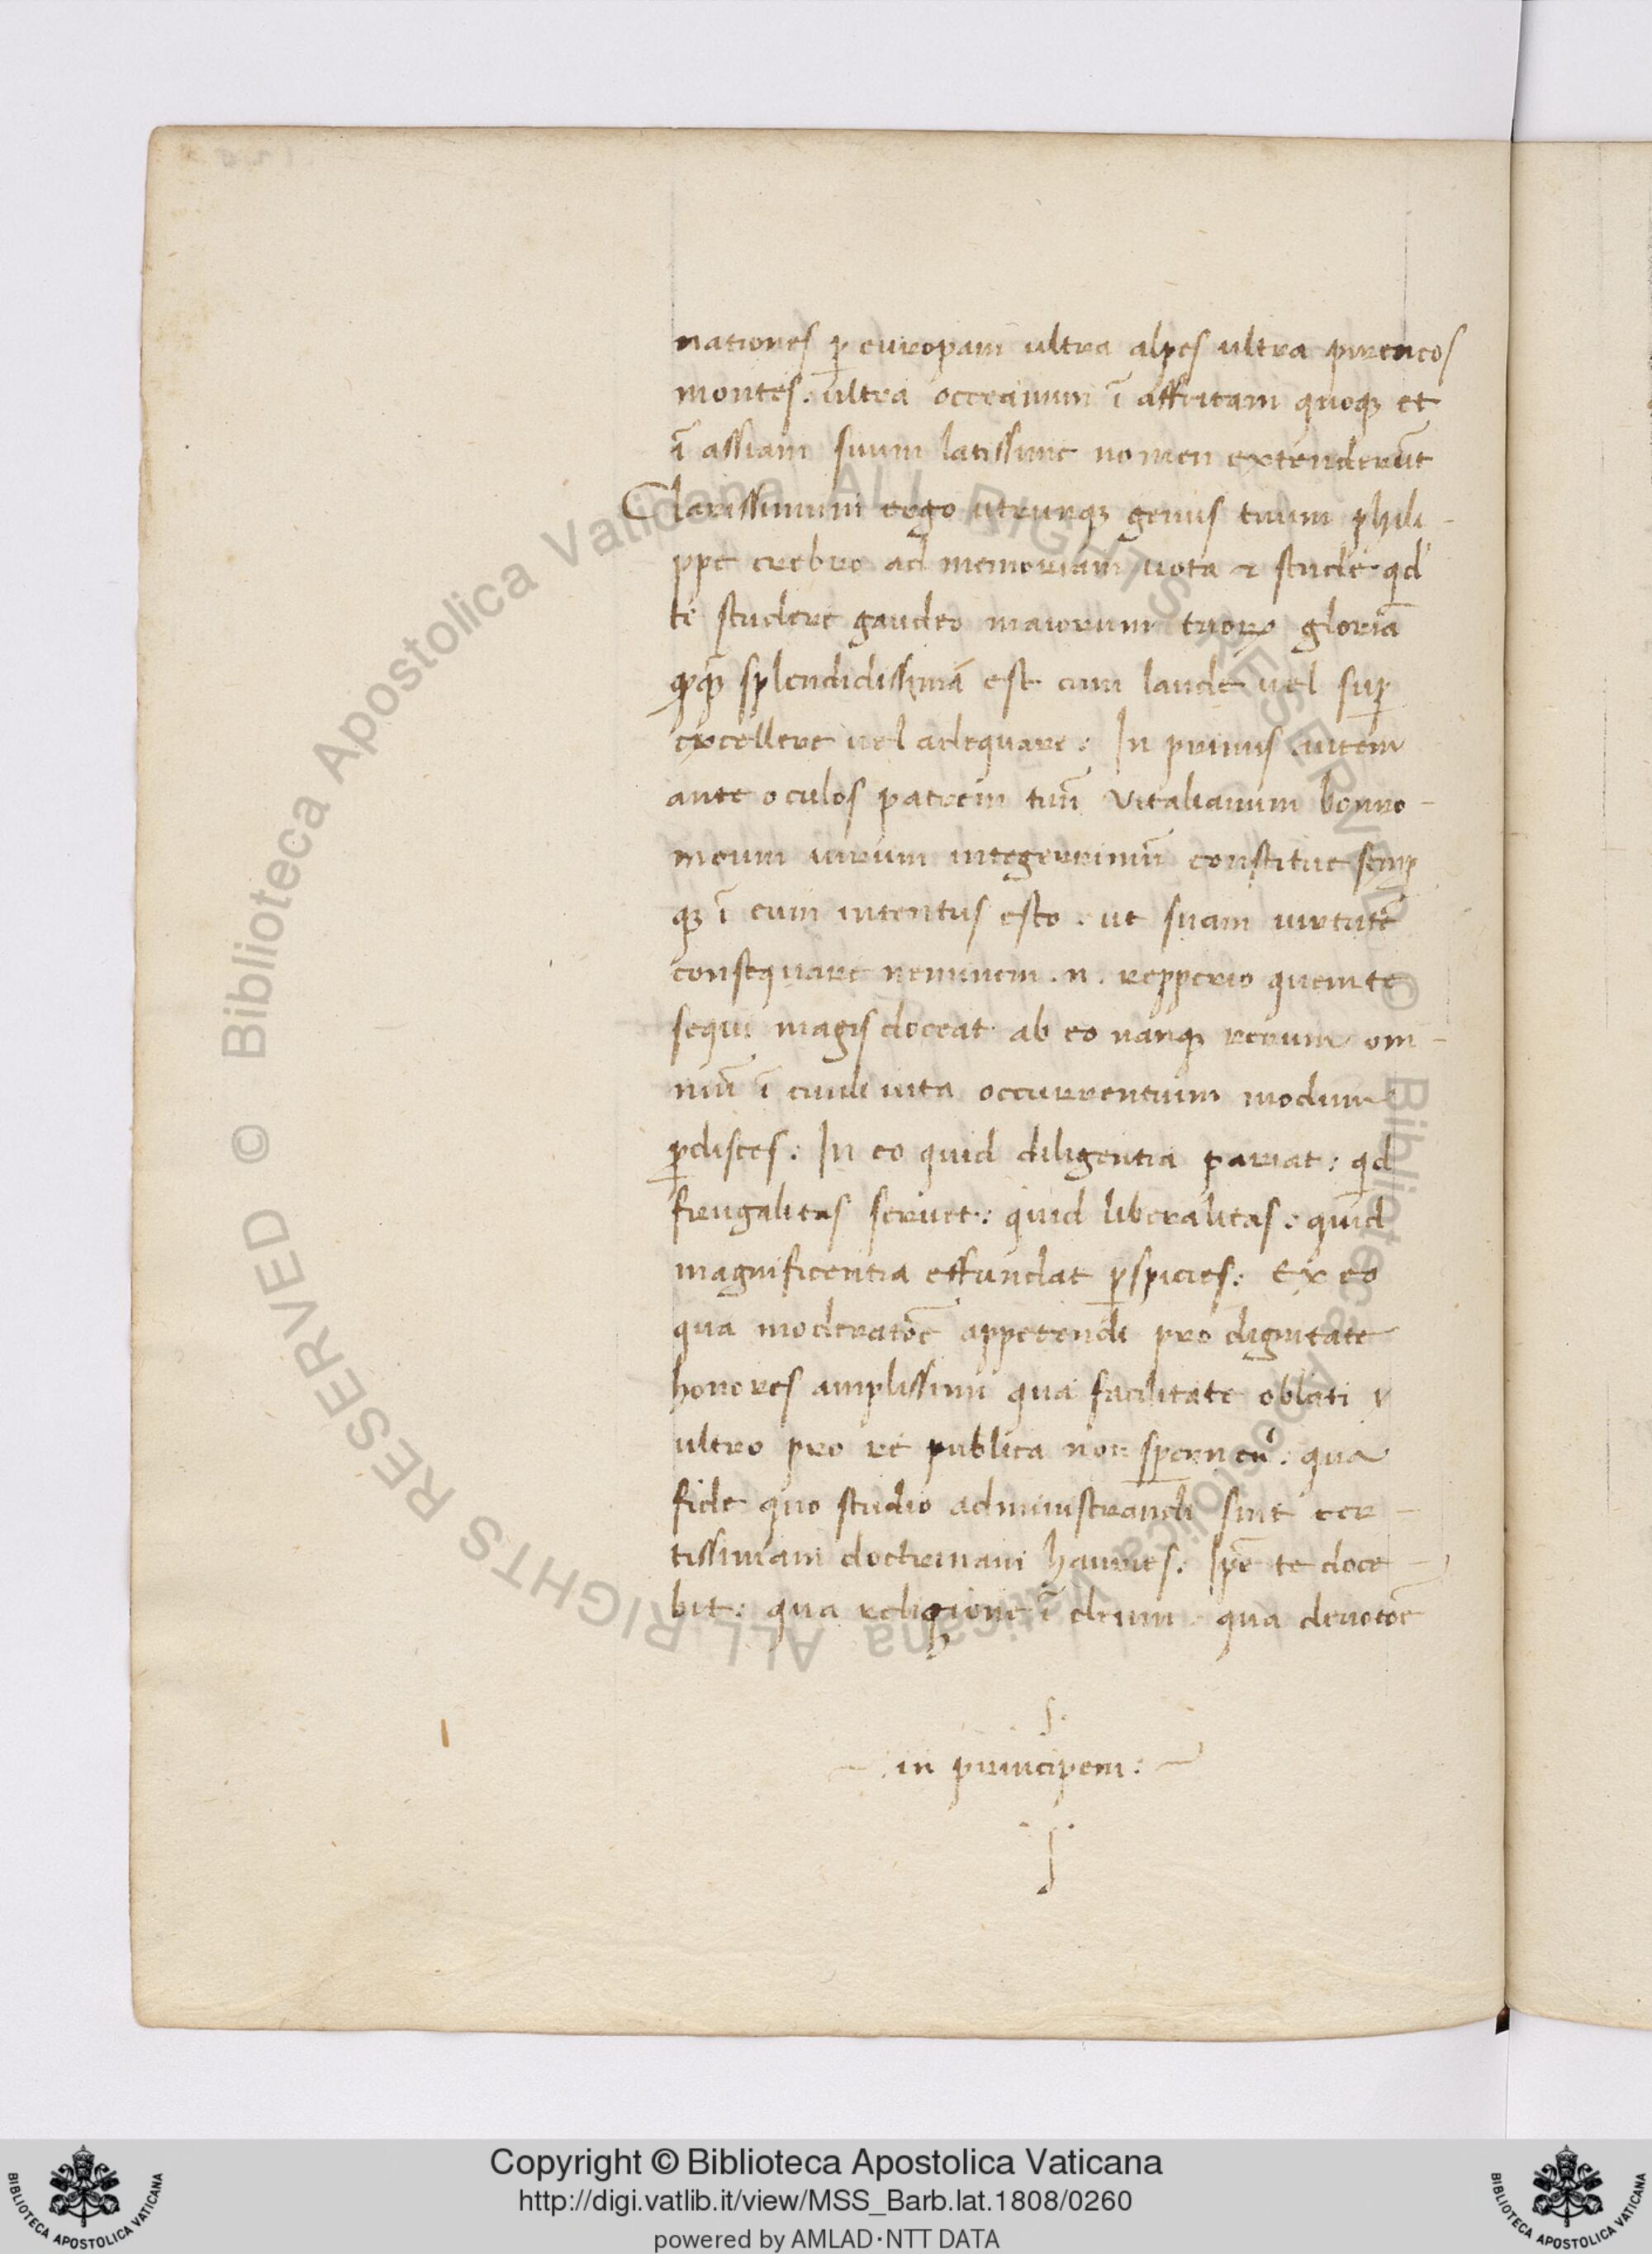 nationes ꝑ europam ultra alpes ultra pireneos
montes. ultra occeanum ī affricam quoqꝫ et
ī assiam suum latissime nomen extenderūt
Clarissimum ergo utrunqꝫ genus tuum phili-
ppe crebro ad memoriam uoca & stude qd
te studere gaudeo maiorum tuoꝝ gloriā
splendidissimā est cum laude uel suꝑ
excellere uel adequare: In primis autem
ante oculos patrem tuū Vitalianum bonro-
meum uirum integerrimū constitue semꝑ
qꝫ ī eum intentus esto. ut suam uirtutē
consequare neminem .n. repperio quem te
sequi magis doceat ab eo nanqꝫ rerum om-
niū ī ciuili uita occurrentium modum
ꝑdisces: In eo quid diligentia pariat: qd
frugalitas seruet: quid liberalitas: quid
magnificentia effundat ꝑspicies: Ex eo
qua moderatōe appetendi pro dignitate
honores amplissimi qua facilitate oblati
ultro pro re publica non
fide quo studio administrandi sint cer-
tissimam doctrinam hauries: Ip̄e te doce-
bit: qua religione ī deum qua deuotōe
in principem:
Copyright © Biblioteca Apostolica Vaticana
http://digi.vatlib.it/view/MSS_Barb.lat.1808/0260
powered by AMLAD·NTT DATA
BIBLIOTECA APOSTOLICA VATICANA
BIBLIOTECA APOSTOLICA VATICANA
© Biblioteca Apostolica Vaticana ALL RIGHTS RESERVED
© Biblioteca Apostolica Vaticana ALL RIGHTS RESERVED